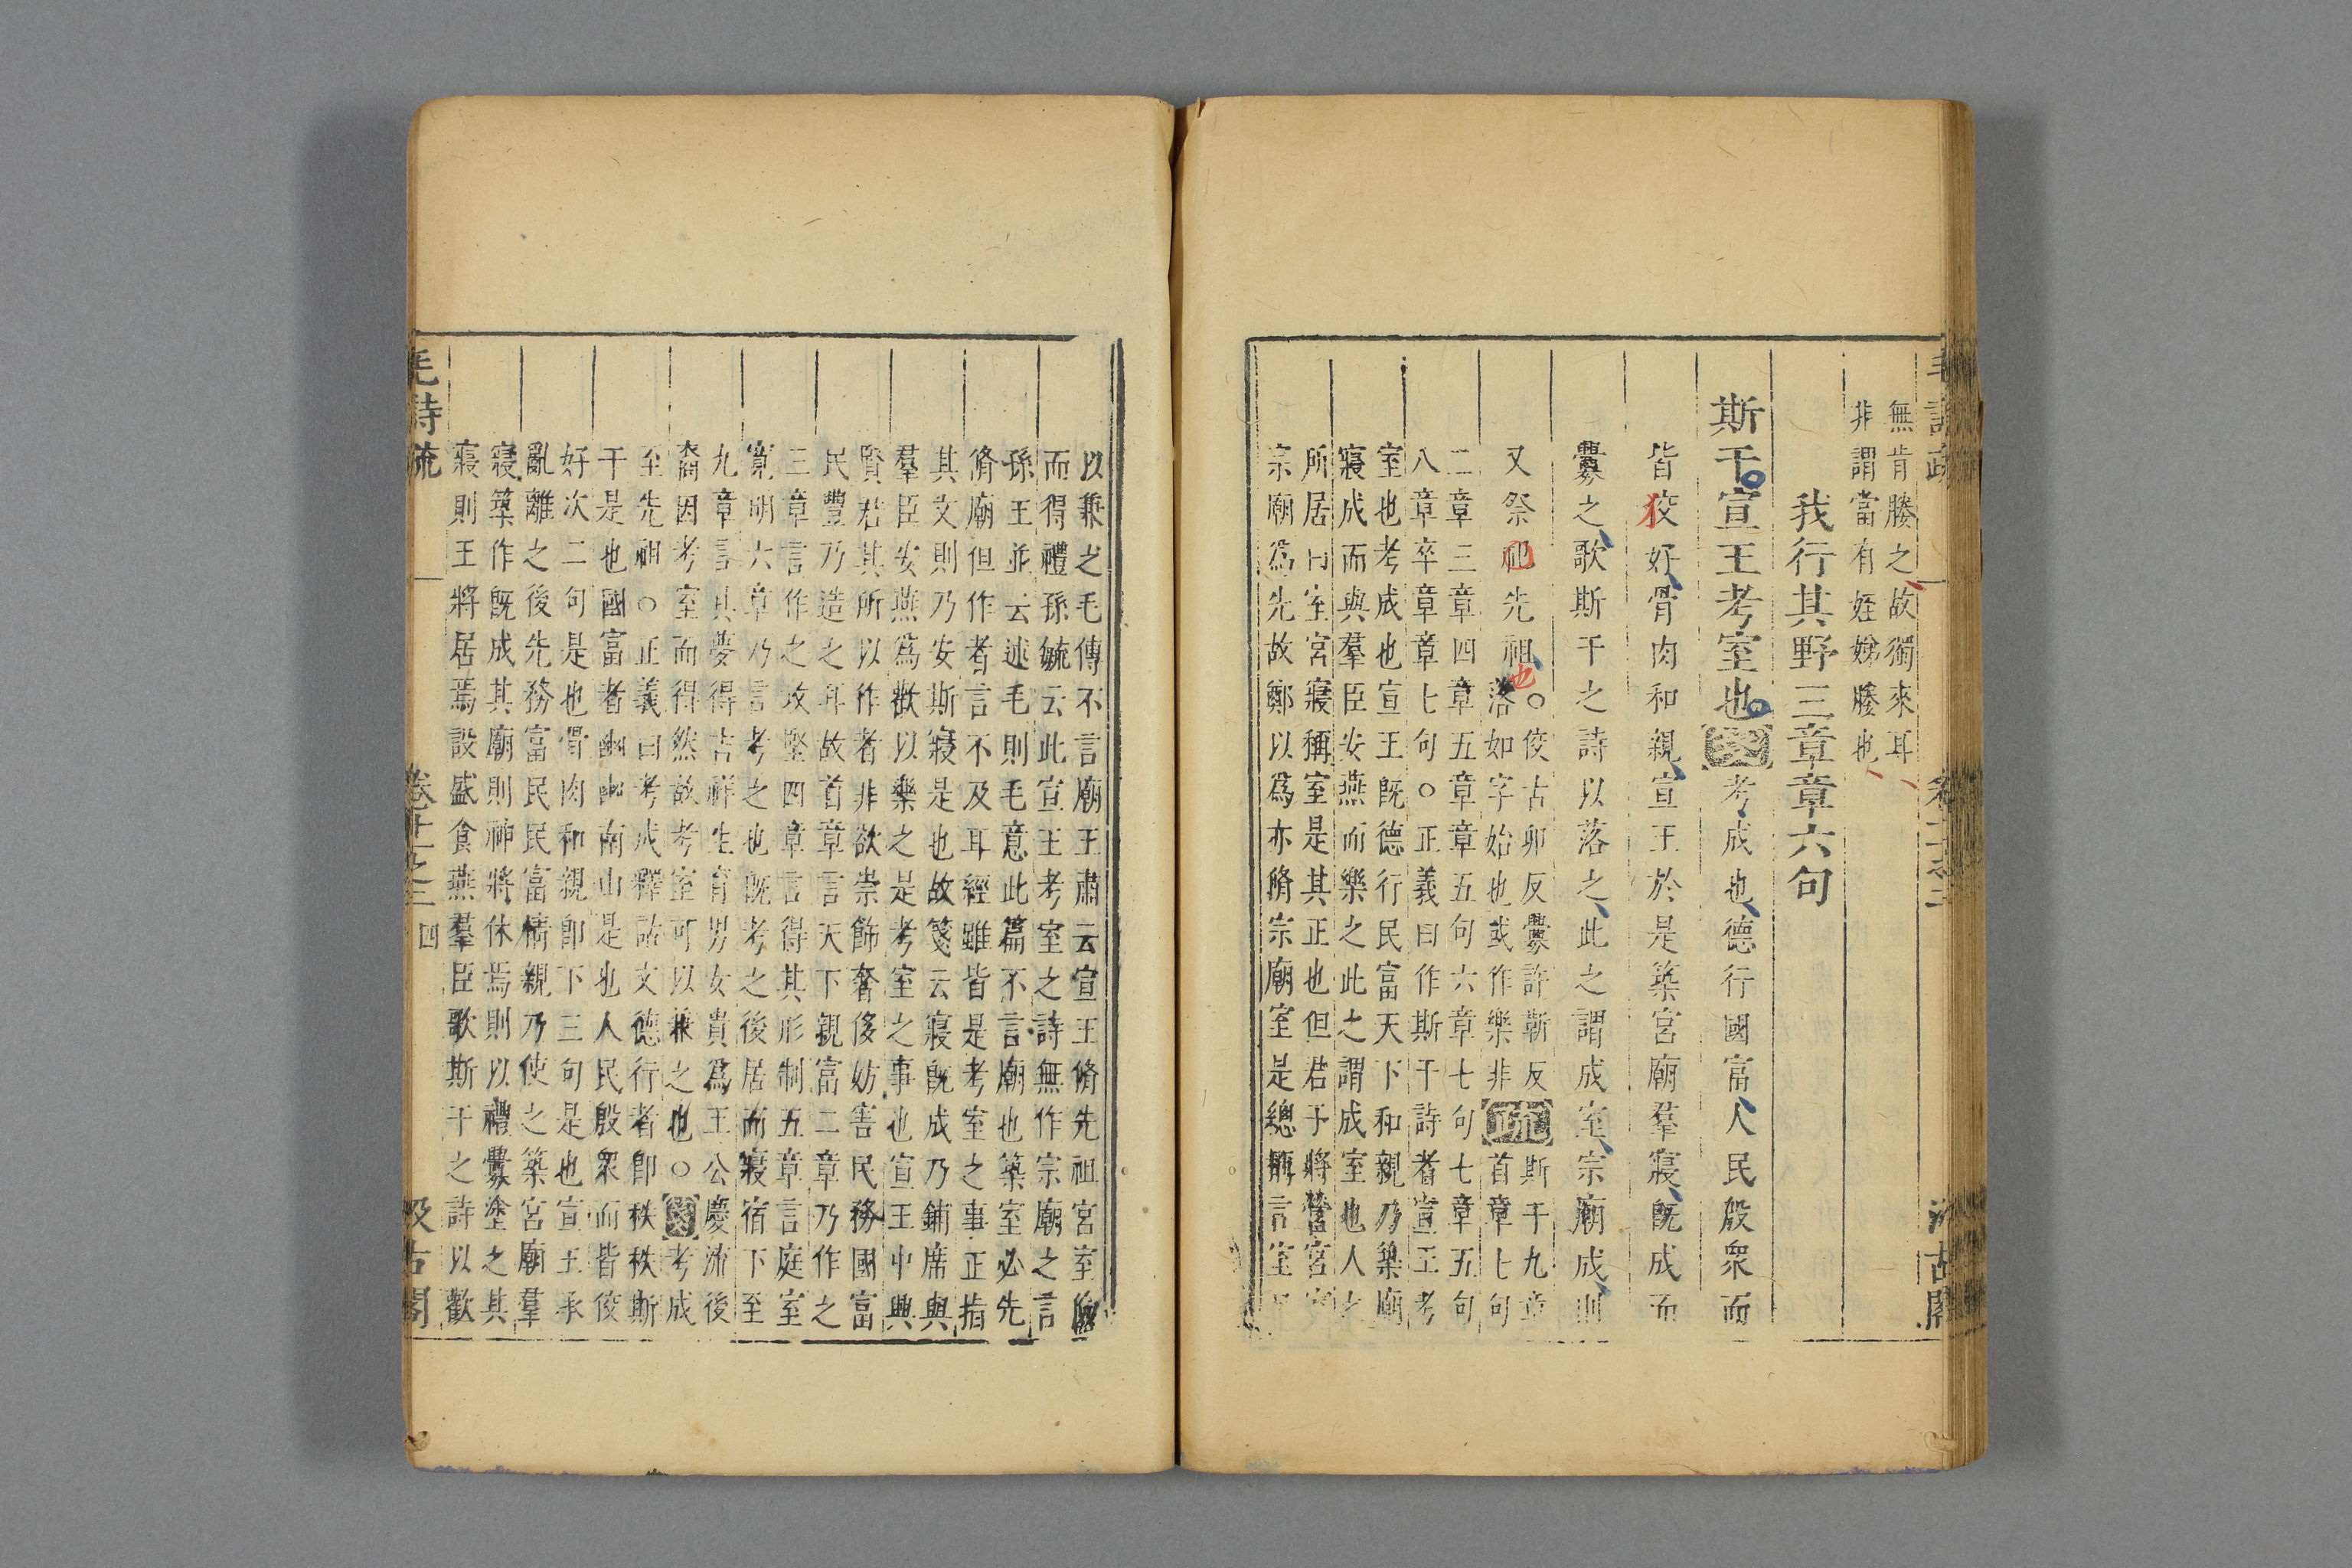 毛詩疏
汲古閣
無肯媵之故獨來耳
非謂當有姪娣媵也
我行其野三章章六句
斯干宣王考室也箋考成也德行國富人民殷衆而
皆佼好骨肉和親宣王於是築宮廟羣寢既成而
釁之歌斯干之詩以落之此之謂成室宗廟成則
又祭祀先祖
也
○佼古卯反釁許靳反
落如字始也或作樂非
疏
斯干九章
首章七句
二章三章四章五章章五句六章七句七章五句
八章卒章章七句○正義曰作斯干詩者宣王考
室也考成也宣王既德行民富天下和親乃築廟
寢成而與羣臣安燕而樂之此之謂成室也人之
所居曰室宮寢稱室是其正也但君子將營宮室
宗廟為先故鄭以為亦脩宗廟室是總稱言室
以兼之毛傳不言廟王肅云宣王脩先祖宮室儉
而得禮孫毓云此宣王考室之詩無作宗廟之言
孫王並云述毛則毛意此篇不言廟也築室必先
脩廟但作者言不及耳經雖皆是考室之事正指
其文則乃安斯寢是也故箋云寢既成乃鋪席與
羣臣安燕為歡以樂之是考室之事也宣王中興
賢君其所以作者非欲崇飾奢侈妨害民務國富
民豐乃造之耳故首章言天下親富二章乃作之
三章言作之攻堅四章言得其形制五章言庭室
寬明六章乃言考之也既考之後居而寢宿下至
九章言其夢得吉祥生育男女貴為王公慶流後
裔因考室而得然故考室可以兼之也○箋考成
至先祖○正義曰考成釋詁文德行者即秩秩斯
干是也國富者幽幽南山是也人民殷衆而皆佼
好次二句是也骨肉和親即下三句是也宣王承
亂離之後先務富民民富情親乃使之築宮廟羣
寢築作既成其廟則神將休焉則以禮釁塗之其
寢則王將居焉設盛食燕羣臣歌斯干之詩以歡
毛詩疏
卷十一之二
四
汲古閣